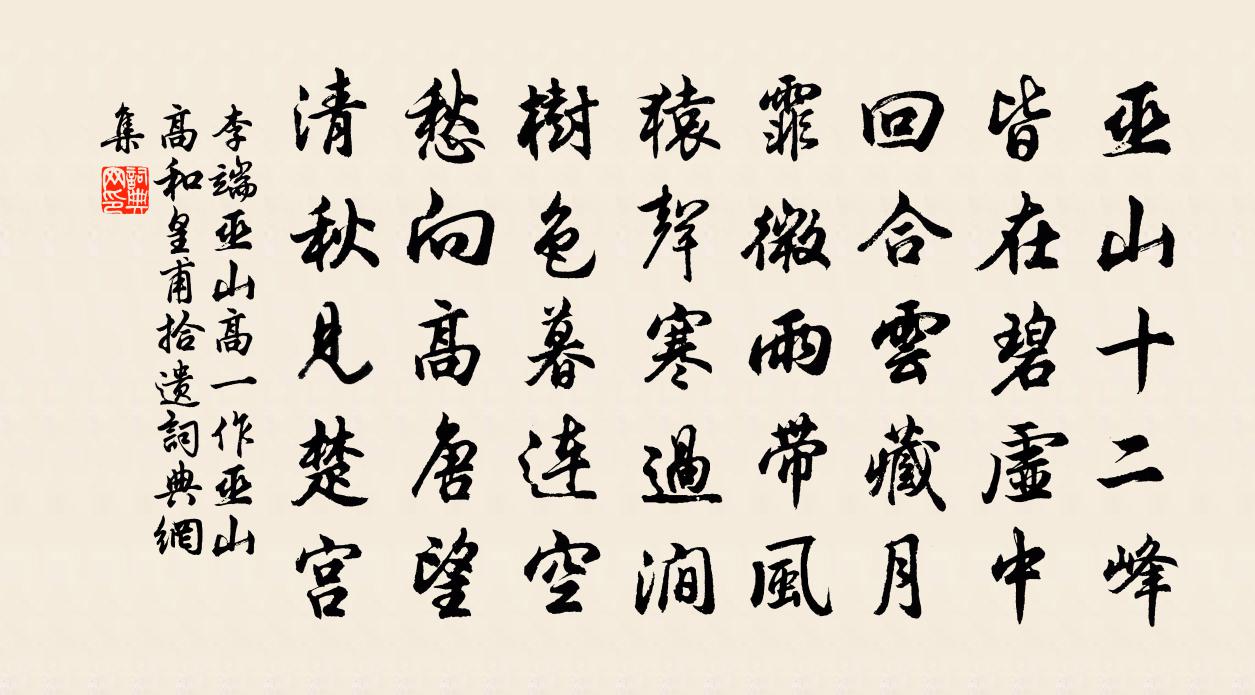 巫山十二峰
皆在碧虛中
回合雲藏月
霏微雨帶風
猿聲寒過澗
樹色暮連空
愁向高唐望
清秋見楚宮
李端巫山高一作巫山
高和皇甫拾遺詞典網
集
詞典網印